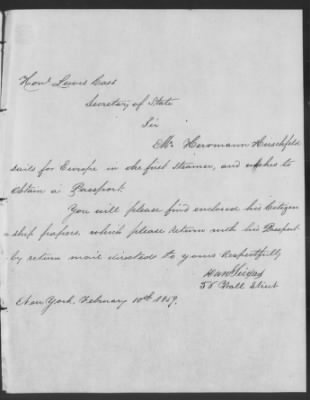 Hon. Lewis Cass
Secretary of State
Sir
Mr. Hermann Herschfeld
sails for Europe in the first steamer, and wishes to
obtain a Passport.
You will please find enclosed his Citizen
ship papers, which please return with his Passport
by return mail directed to yours respectfully
58 Wall Street
New York. February 10th. 1859.